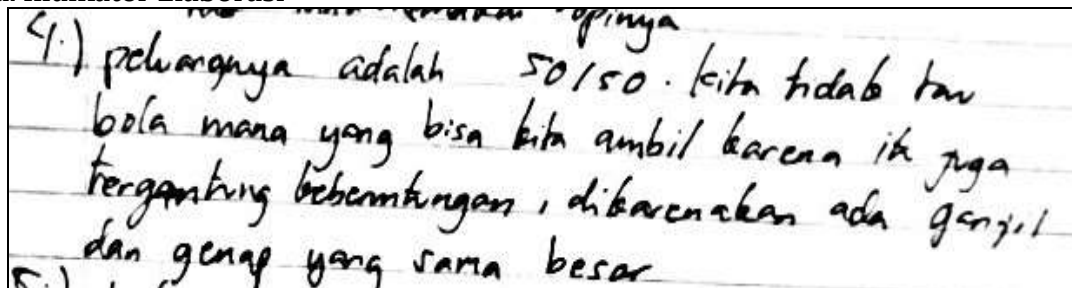 opinya
4.) peluangnya adalah 50/50. kita tidak tau
bola mana yang bisa kita ambil karena itu juga
tergantung keberuntungan, dikarenakan ada ganjil
dan genap yang sama besar
5.)